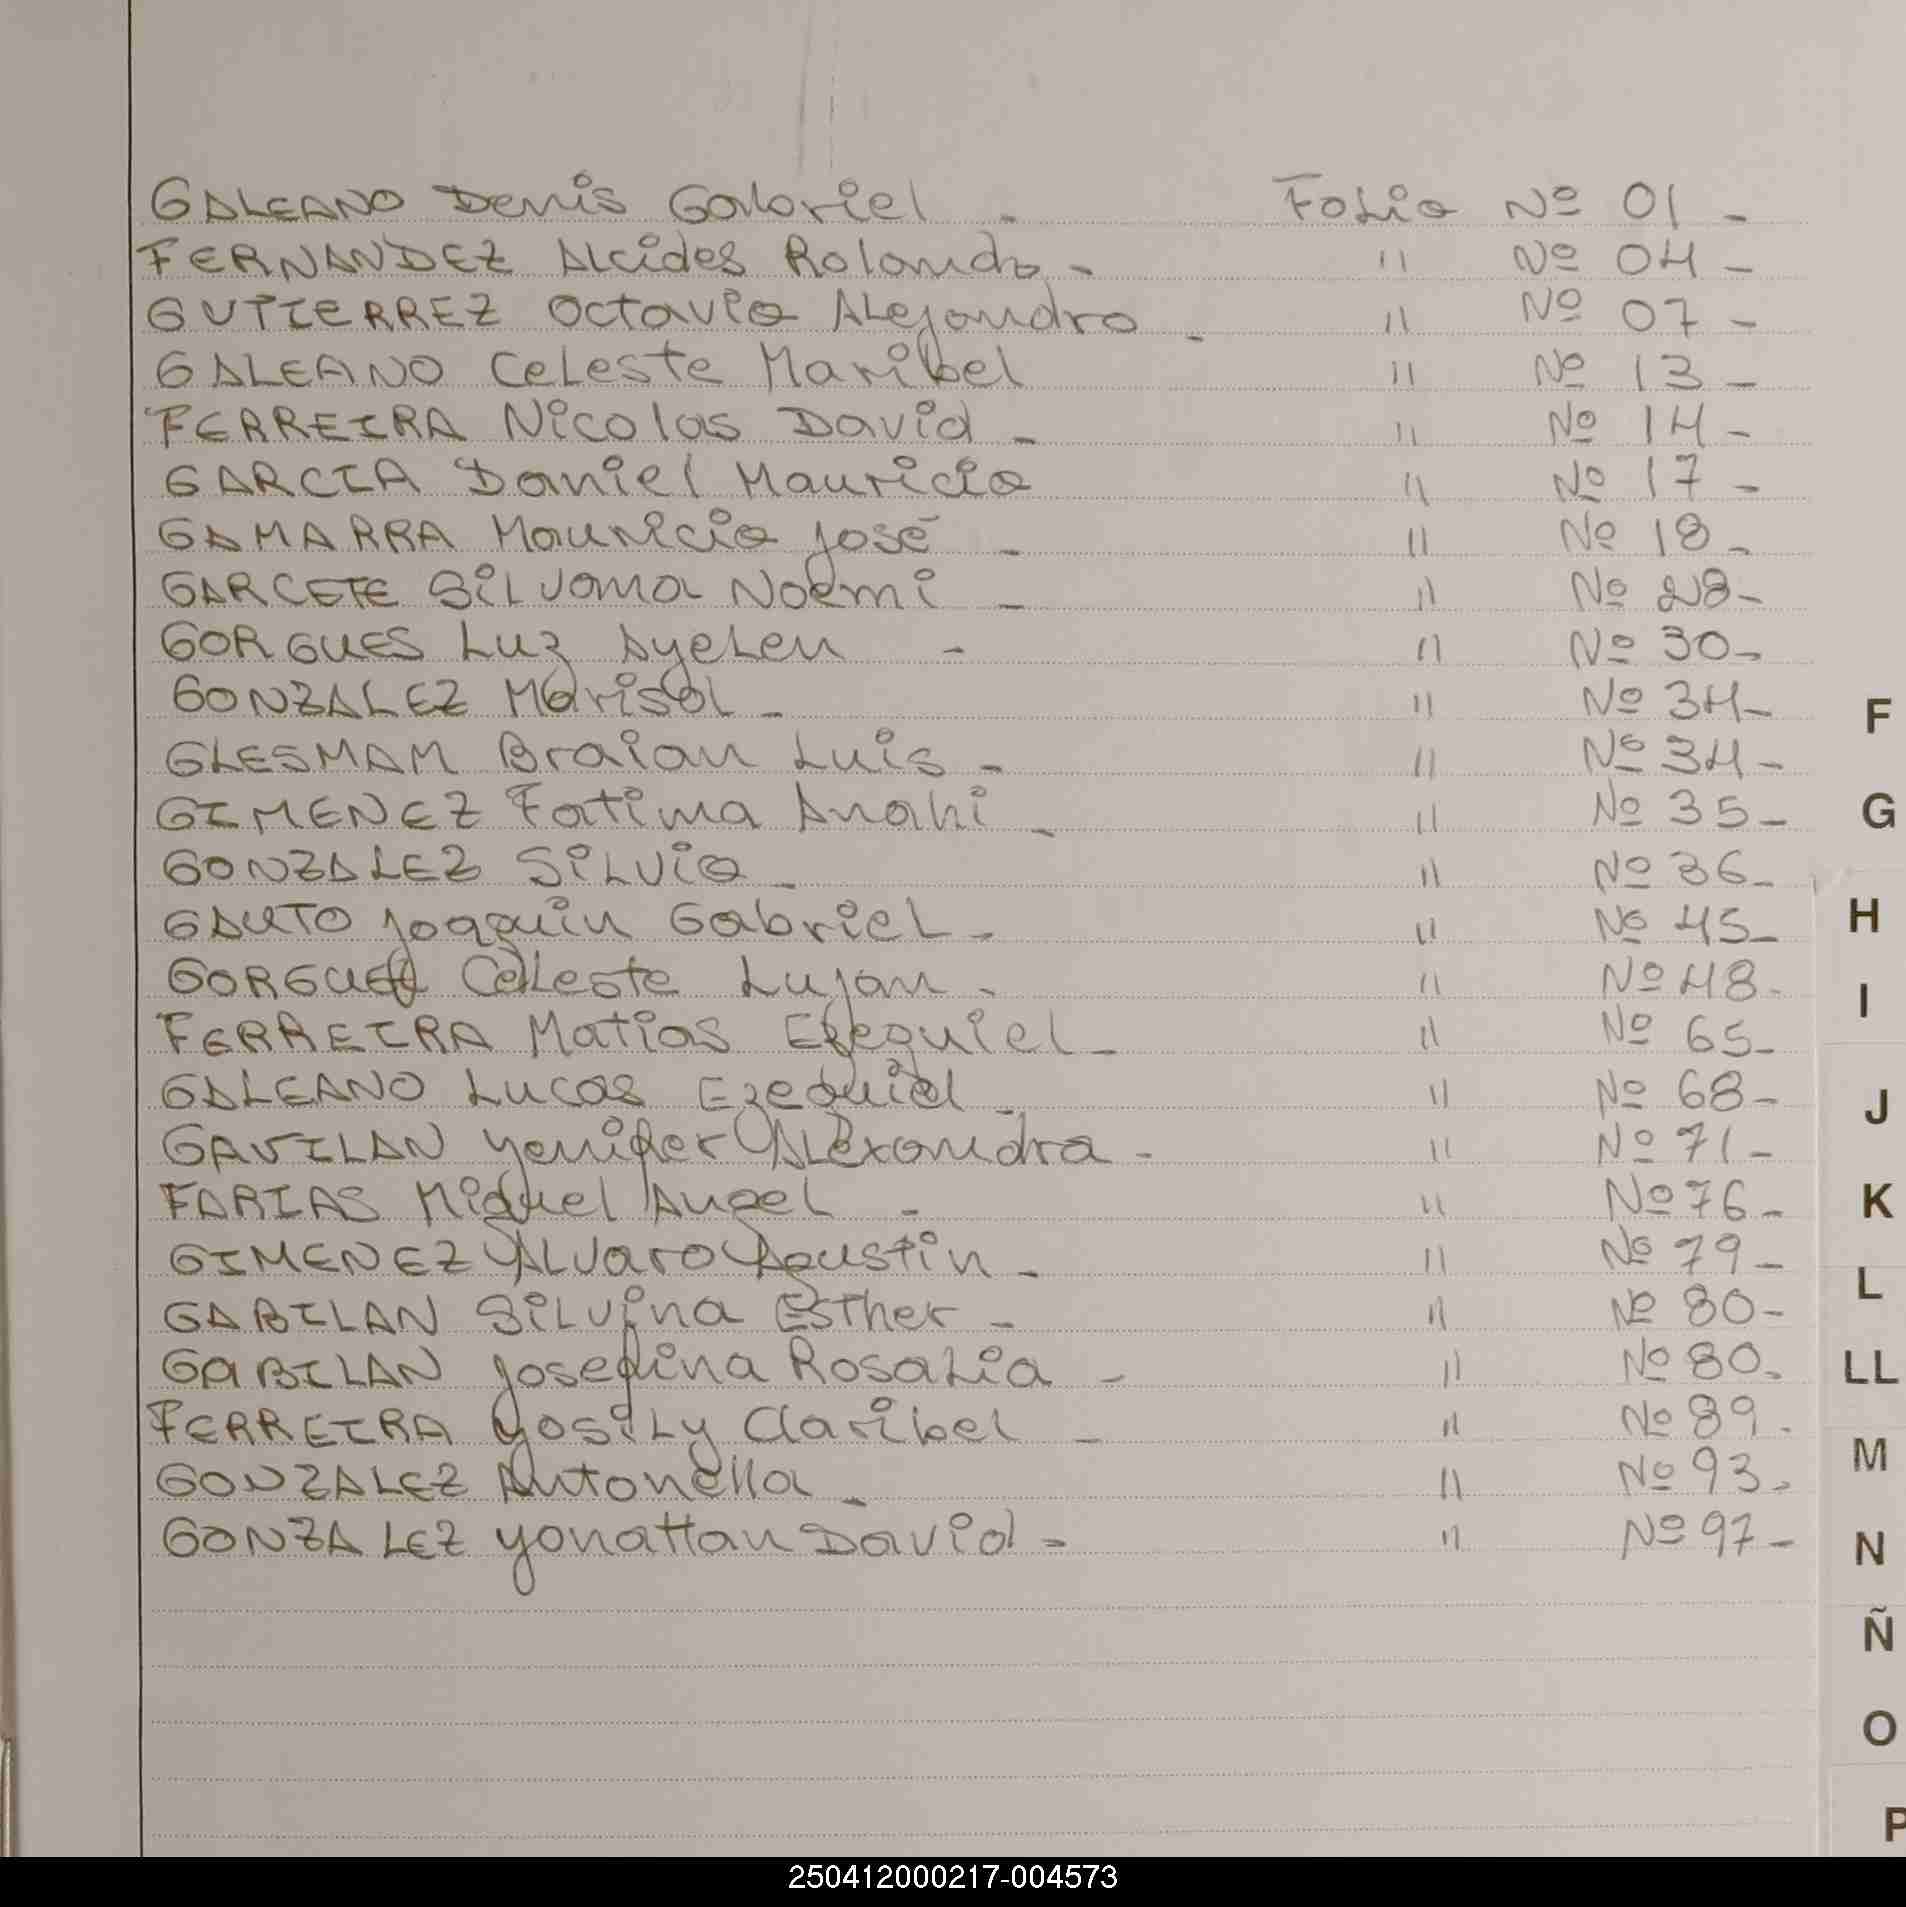 GALEANO Denis Gabriel - Folio Nº 01 -
FERNANDEZ Alcides Rolando - " Nº 04 -
GUTIERREZ Octavio Alejandro - " Nº 07 -
GALEANO Celeste Maribel " Nº 13 -
FERREIRA Nicolas David - " Nº 14 -
GARCIA Daniel Mauricio " Nº 17 -
GAMARRA Mauricio José - " Nº 18 -
GARCETE Silvana Noemi - " Nº 28 -
GORGUES Luz Ayelen - " Nº 30 -
GONZALEZ Marisol - " Nº 34 -
GLESMAM Braian Luis - " Nº 34 -
GIMENEZ Fatima Anahi - " Nº 35 -
GONZALEZ Silvio - " Nº 36 -
GAUTO Joaquin Gabriel - " Nº 45 -
Celeste Lujan - " Nº 48 -
FERREIRA Matias Ezequiel - " Nº 65 -
GALEANO Lucas Ezequiel - " Nº 68 -
GAVILAN Yenifer Alexandra - " Nº 71 -
FARIAS Miguel Angel - " Nº 76 -
GIMENEZ Alvaro Agustin - " Nº 79 -
GABILAN Silvina Esther - " Nº 80 -
GABILAN Josefina Rosalia - " Nº 80 -
FERREIRA Yosily Claribel - " Nº 89 -
GONZALEZ Antonella - " Nº 93 -
GONZALEZ Yonattan David - " Nº 97 -
F
G
H
I
J
K
L
LL
M
N
Ñ
O
P
250412000217-004573